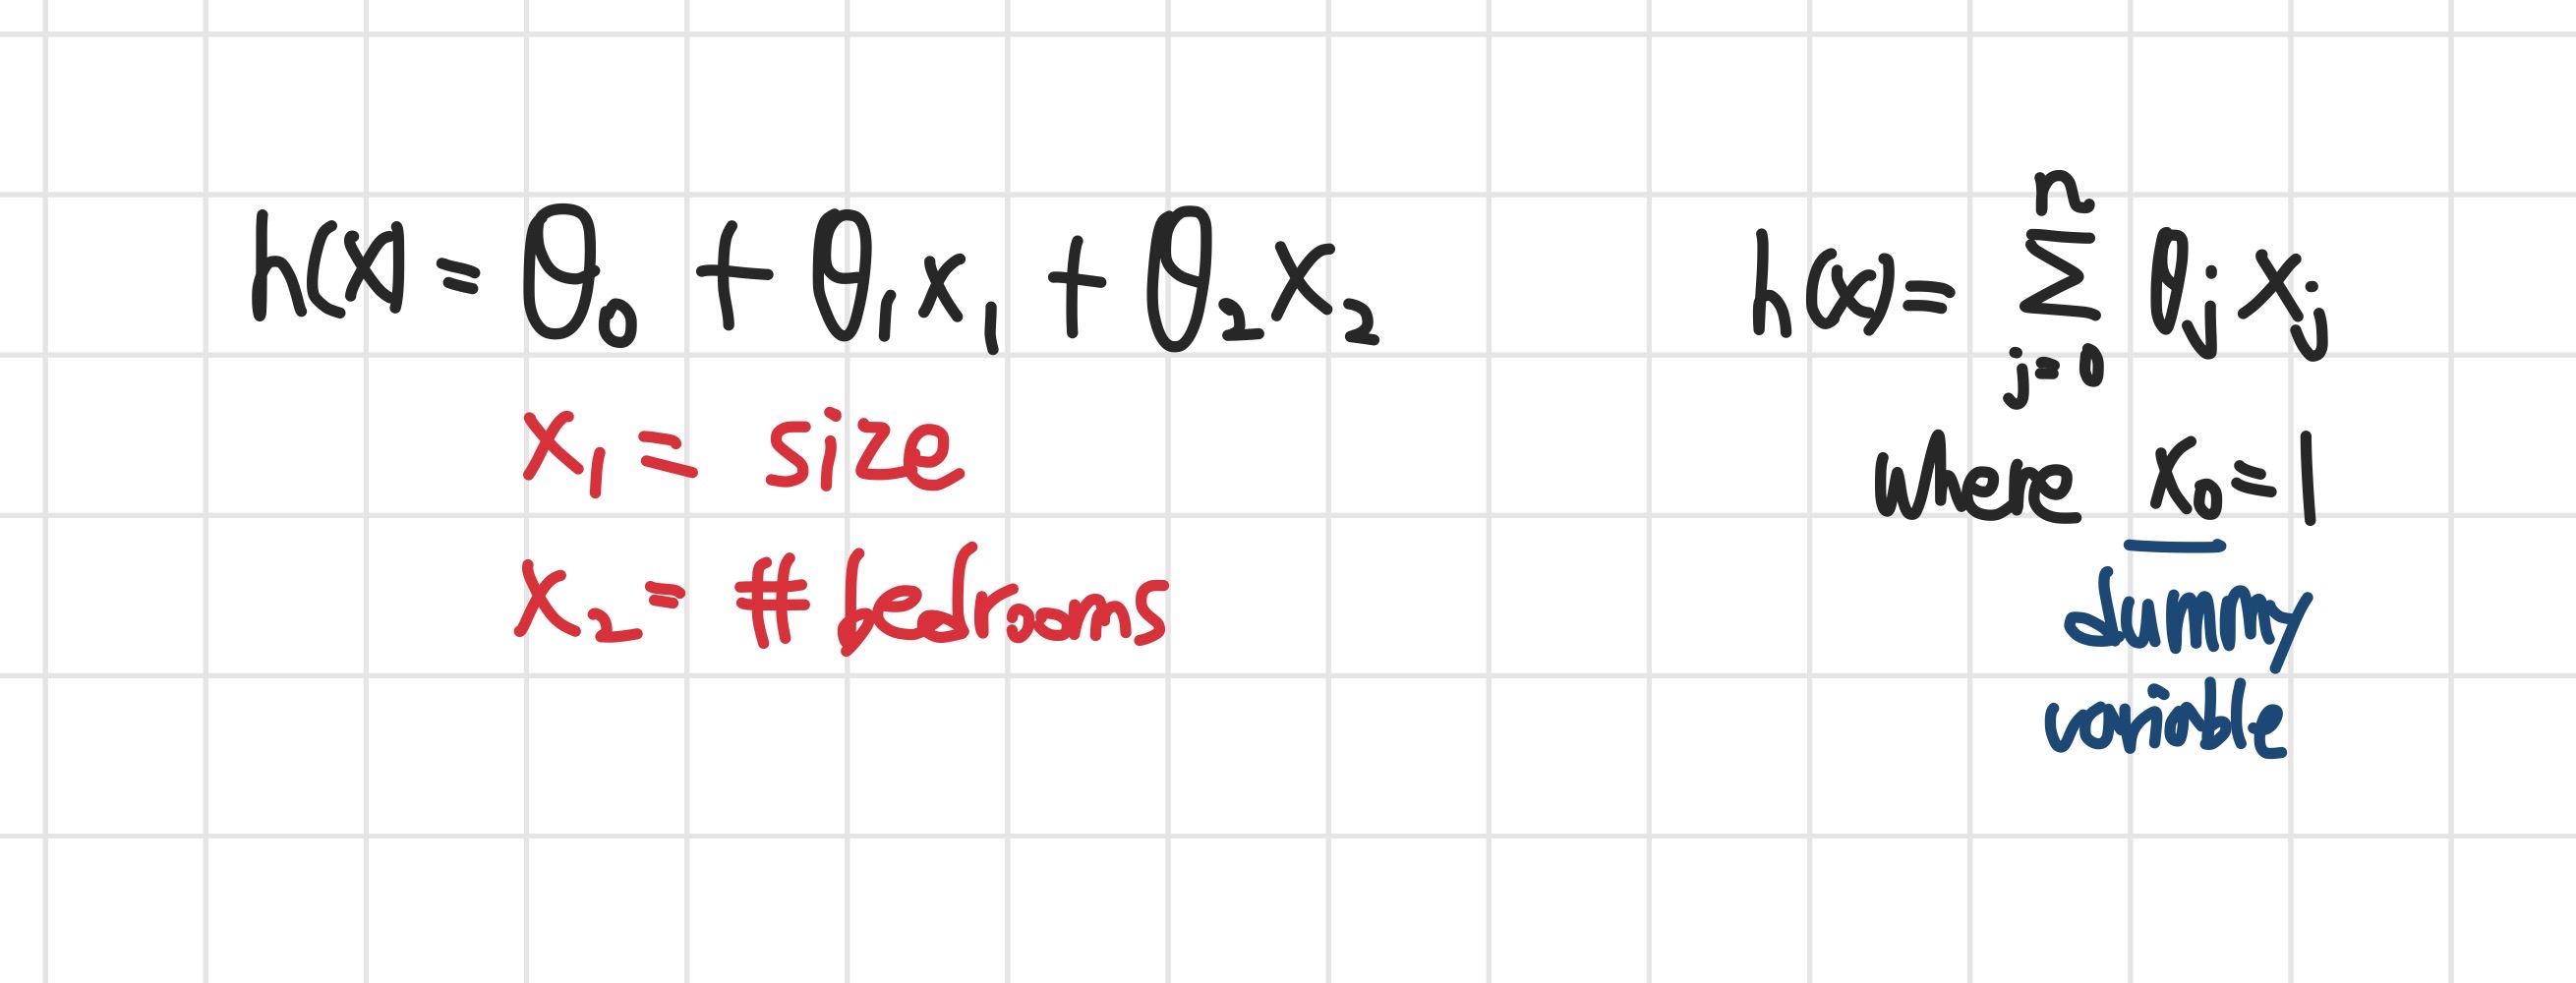 h(x) = θ₀ + θ₁x₁ + θ₂x₂
x₁ = size
x₂ = # bedrooms
h(x) = Σⁿⱼ₌₀ θⱼxⱼ
where x₀ = 1
dummy
variable